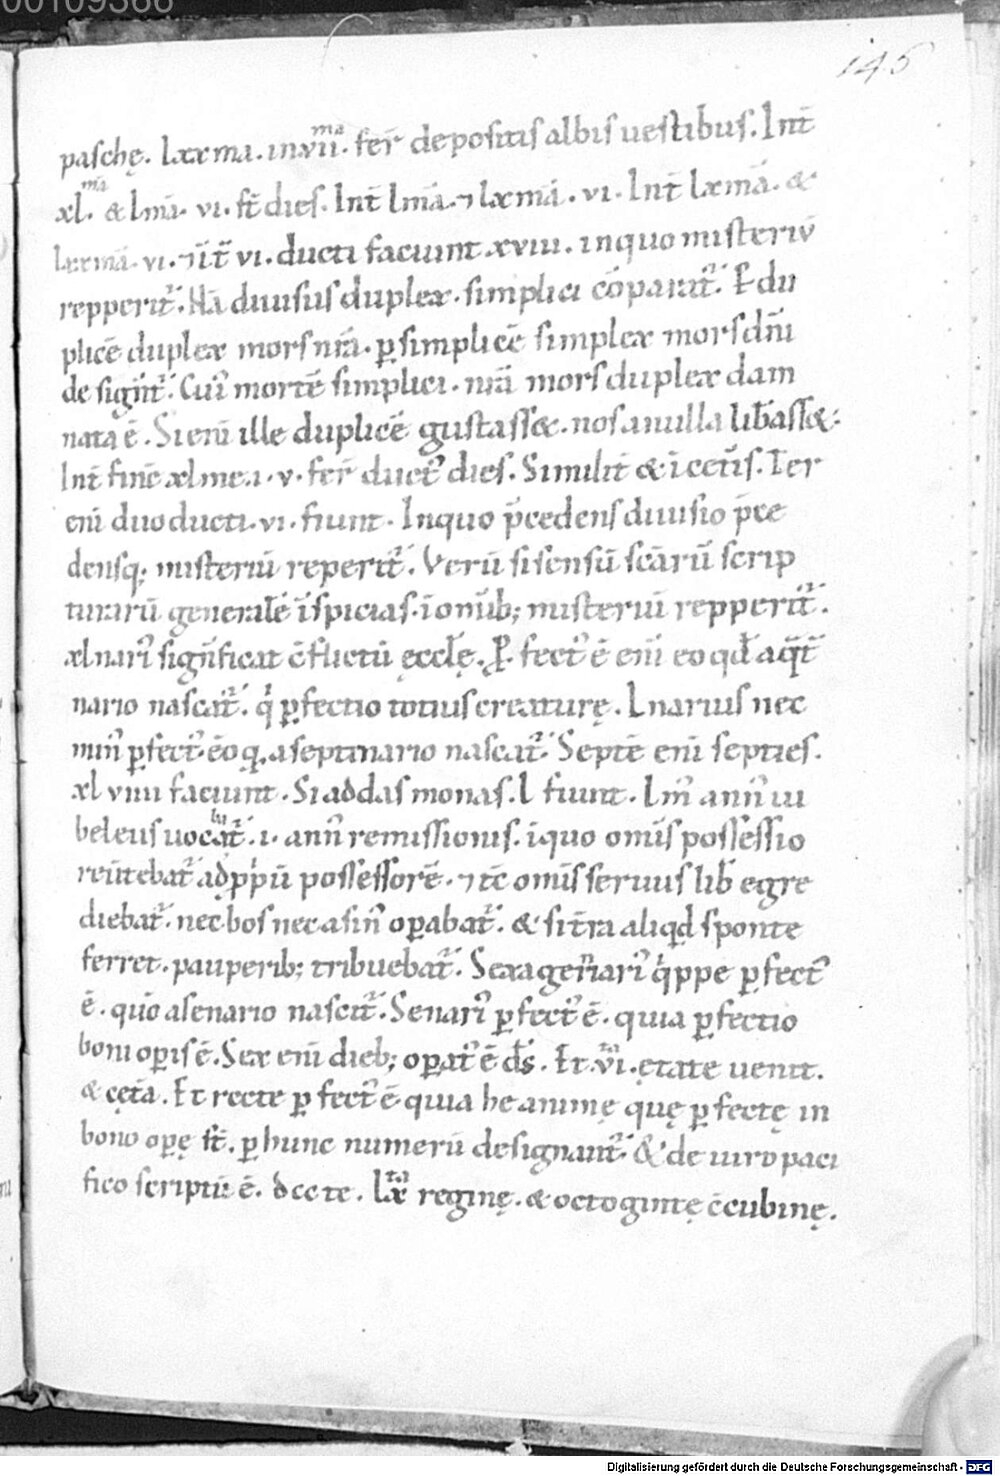 00109366
145
paschę. lxx ma. in .vii.ma fer̄ depositis albis uestibus. Int̄
xl.mā & lmā. vi. st̄ dies. Int̄ lmā. ⁊ lxmā. vi. Int̄ lxmā. &
lxxmā. vi. ⁊ it̄ vi. ducti faciunt xviii. in quo misteriū
repperit᷑. Nā diuisus duplex. simplici cōparat᷑. Et du
plicē duplex mors nr̄a. ꝑ simplicē simplex mors dn̄i
designt᷑. Cui᷒ mortē simplici. nr̄a mors duplex dam
nata ē. Si eni ille duplicē gustass&. nos a nulla lib̄ass&.
Int̄ finē xlme. i. v. fer̄ duct᷒ dies. Similit̄ & ī cet̄is. Ter
eni duo ducti. vi. fiunt. In quo p̄cedens diuisio p̄ce
densq; misteriū reperit᷑. Verū si sensū scārū scrip
turarū generalē īspicias. ī omīb; misteriū repperit᷑.
xlnari᷒ significat c̄flictū ęccłę. Ꝑfect᷒ ē eni eo qd̄ a q̄t̄
nario nascat᷑. q̇ ꝑfectio totius creaturę. Lnarius nec
min᷒ ꝑfect᷒ ē eo q. a septinario nascat᷑. Septē eni septies.
xl viiii faciunt. Si addas monas. l fiunt. Im̄ ann᷒ iu
beleus uocat᷑. i. ann᷒ remissionis. ī quo omīs possessio
reūtebat᷑ ad ꝓpriū possessorē. ⁊ tc̄ omīs seruus lib̄ egre
diebat᷑. nec bos nec asin᷒ oꝑabat᷑. & si t̄ra aliqd̄ sponte
ferret. pauperib; tribuebat᷑. Sexagenari᷒ q̇ppe ꝑfect᷒
ē. quō a senario nascit᷑. Senari᷒ ꝑfect᷒ ē. quia ꝑfectio
boni oꝑis ē. Sex eni dieb; oꝑat᷒ ē ds̄. Et .vi. ętate uenit.
& cęt̄a. Et recte ꝑfect᷒ ē quia he animę quę ꝑfectę in
bono oꝑe st̄. ꝑ hunc numerū designant᷑. & de uiro paci
fico scriptū ē. dcc te. lx regine. & octoginte c̄cubinę.
Digitalisierung gefördert durch die Deutsche Forschungsgemeinschaft - DFG